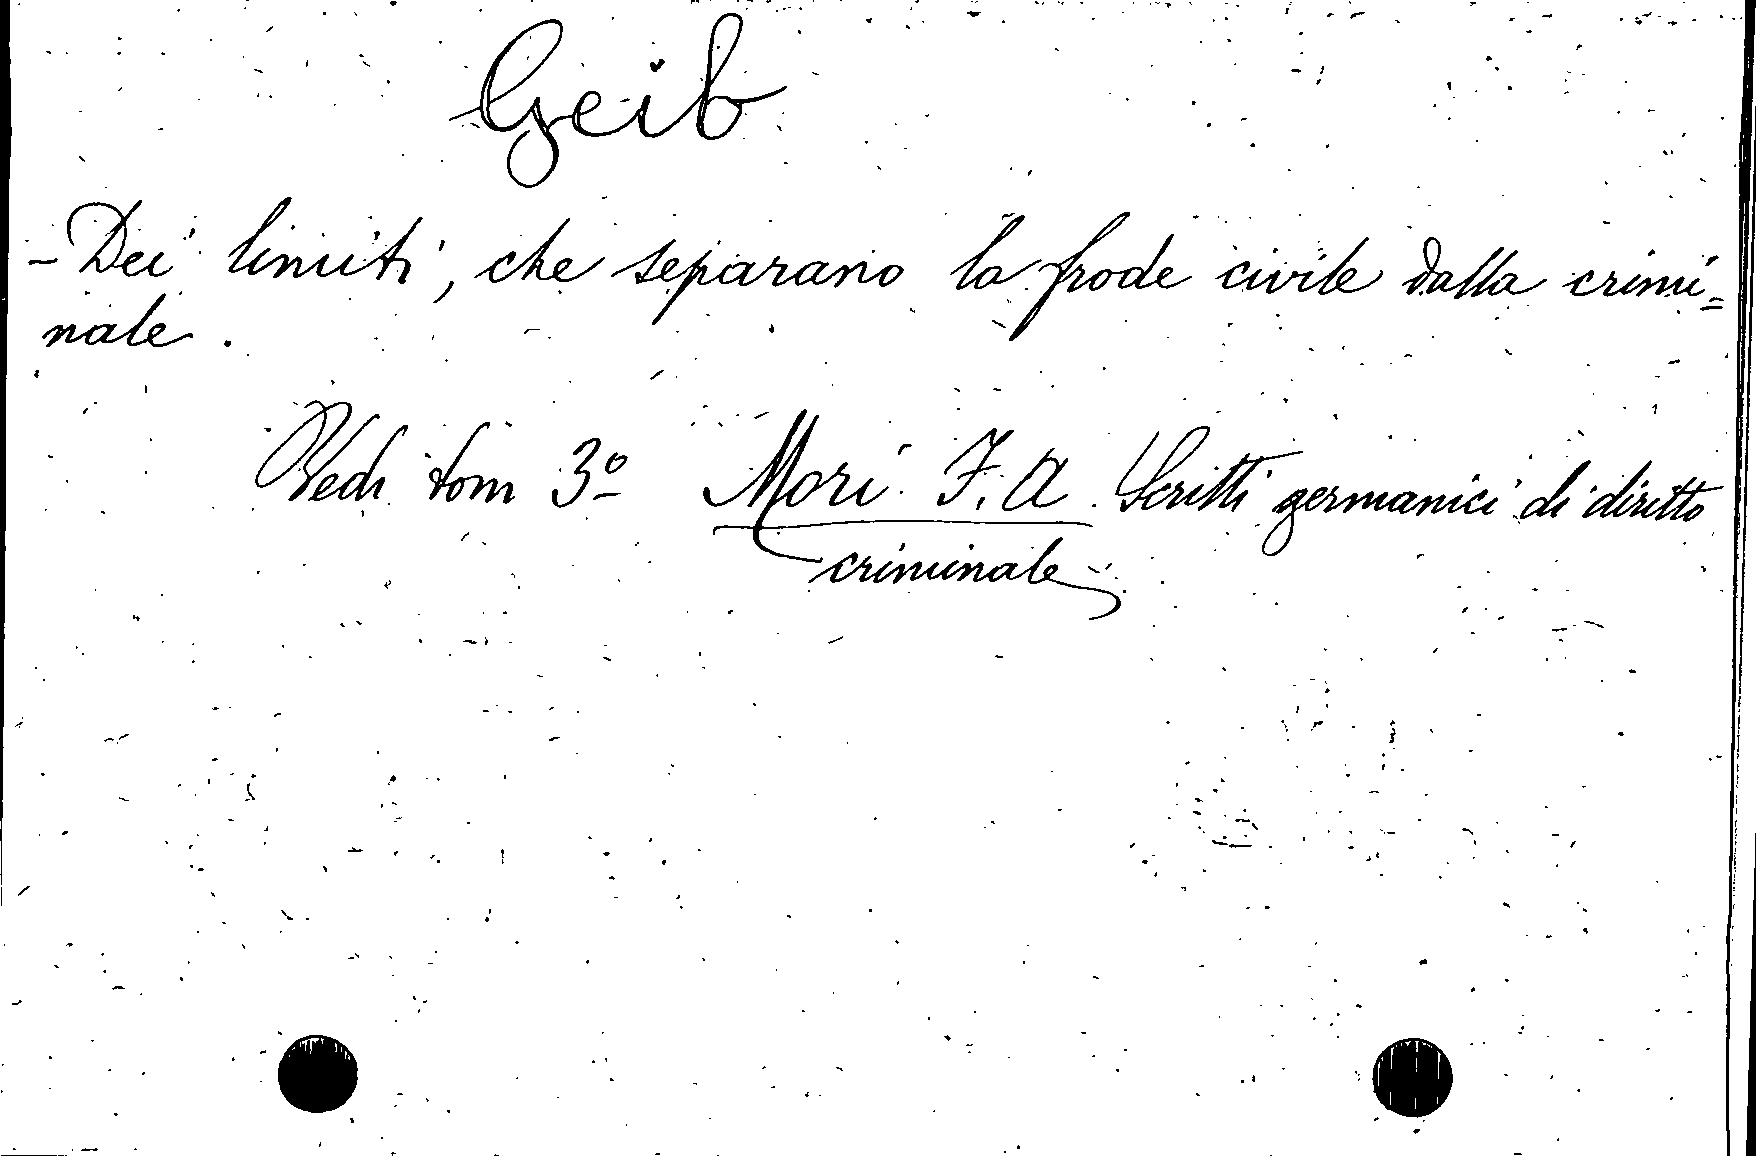 Geib
- Dei limiti, che separano la frode civile dalla crimi=
nale.
Vedi tom 3º Mori F. A. Scritti germanici di diritto
criminale